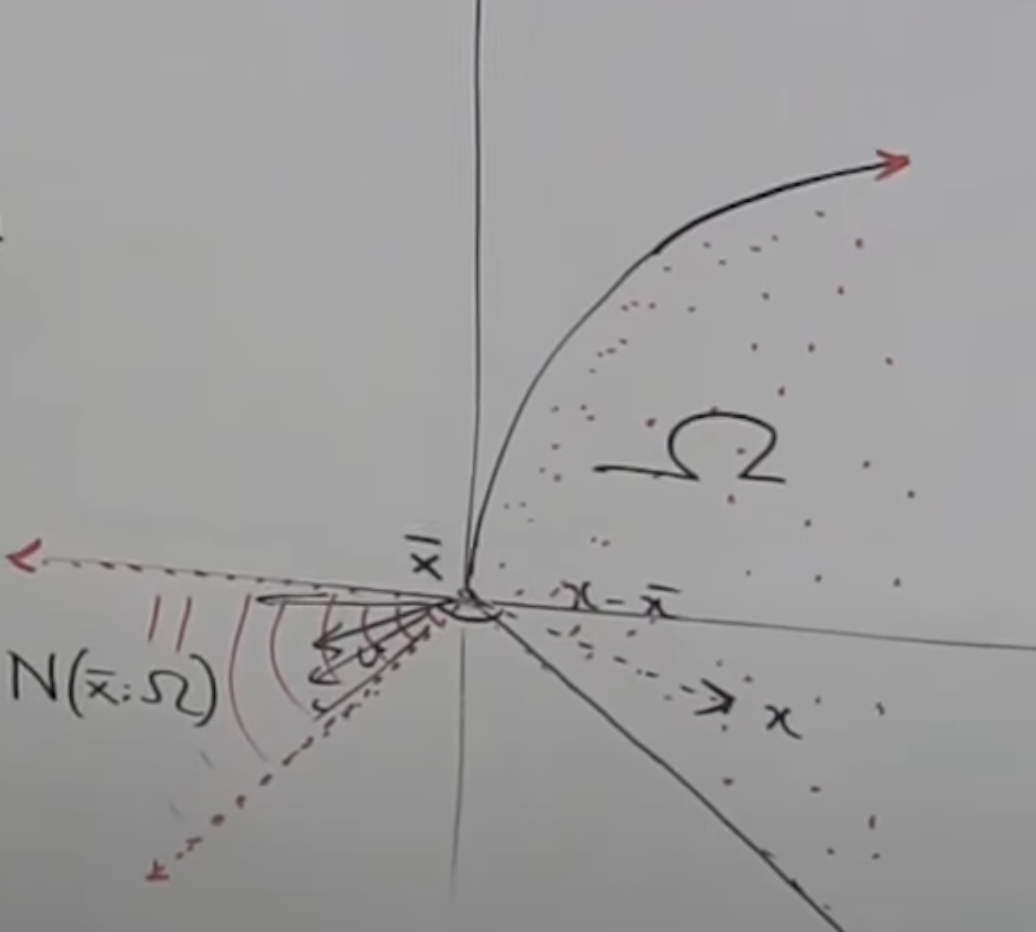 Ω
x̄
x - x̄
N(x̄; Ω)
x